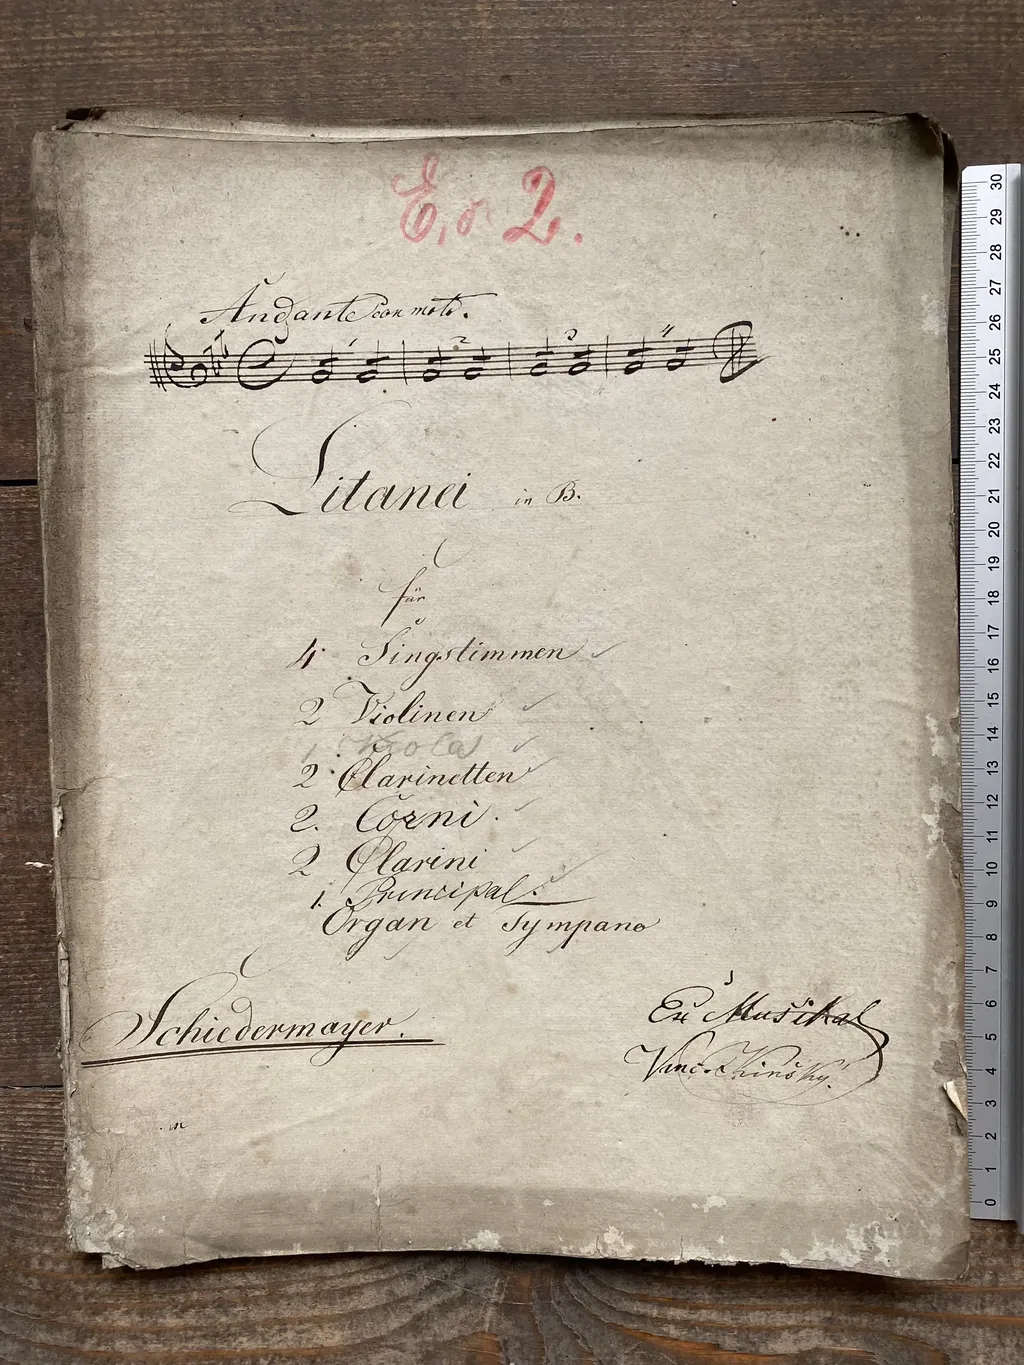 E, 2.
Andante con moto.
1 2 3 4
Litanei in B.
für
4 Singstimmen
2 Violinen
1 Viola
2 Clarinetten
2. Corni.
2 Clarini
1. Principal.
Organ et Tympano
Schiedermayer.
Ex Musikal
Vinc. Kinský
30
29
28
27
26
25
24
23
22
21
20
19
18
17
16
15
14
13
12
11
10
9
8
7
6
5
4
3
2
1
0